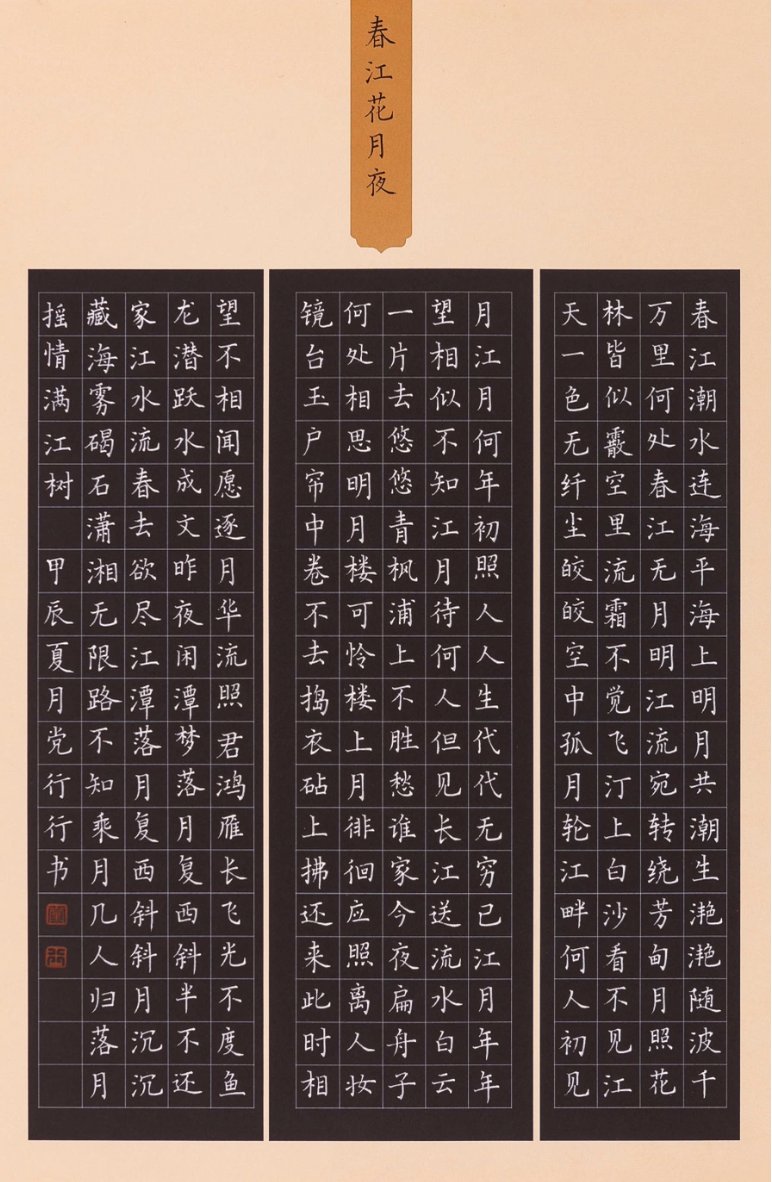 春江花月夜
春江潮水连海平海上明月共潮生滟滟随波千
万里何处春江无月明江流宛转绕芳甸月照花
林皆似霰空里流霜不觉飞汀上白沙看不见江
天一色无纤尘皎皎空中孤月轮江畔何人初见
月江月何年初照人人生代代无穷已江月年年
望相似不知江月待何人但见长江送流水白云
一片去悠悠青枫浦上不胜愁谁家今夜扁舟子
何处相思明月楼可怜楼上月徘徊应照离人妆
镜台玉户帘中卷不去捣衣砧上拂还来此时相
望不相闻愿逐月华流照君鸿雁长飞光不度鱼
龙潜跃水成文昨夜闲潭梦落月复西斜半不还
家江水流春去欲尽江潭落月复西斜斜月沉沉
藏海雾碣石潇湘无限路不知乘月几人归落月
摇情满江树 甲辰夏月党行行书